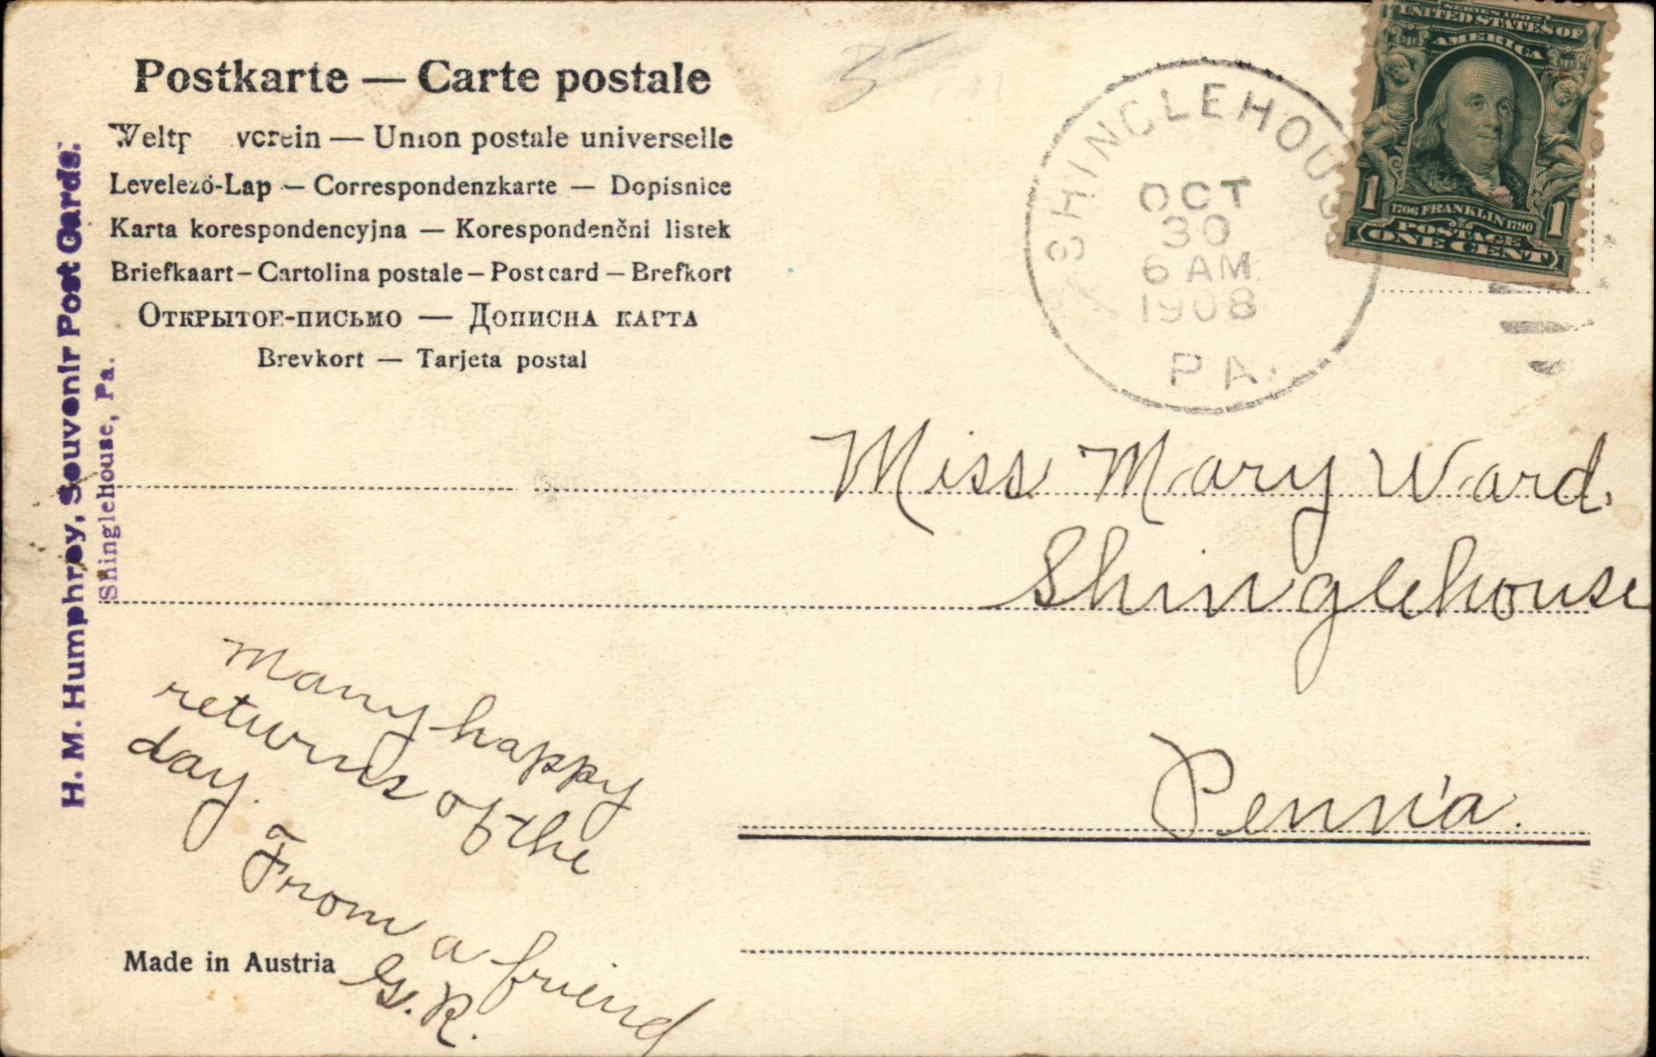 Postkarte — Carte postale
verein — Union postale universelle
Levelező-Lap — Correspondenzkarte — Dopisnice
Karta korespondencyjna — Korespondenčni listek
Briefkaart — Cartolina postale — Post card — Brefkort
Открытое-письмо — Дописна карта
Brevkort — Tarjeta postal
H. M. Humphrey, Souvenir Post Cards.
Shinglehouse, Pa.
SHINGLEHOUSE
OCT
30
6 AM
1908
PA.
SERIES 1902
UNITED STATES OF
AMERICA
1706 FRANKLIN 1790
POSTAGE
1 ONE CENT 1
Miss Mary Ward.
Shinglehouse
Penn'a.
Many happy
returns of the
day.
From a friend
G. R.
Made in Austria